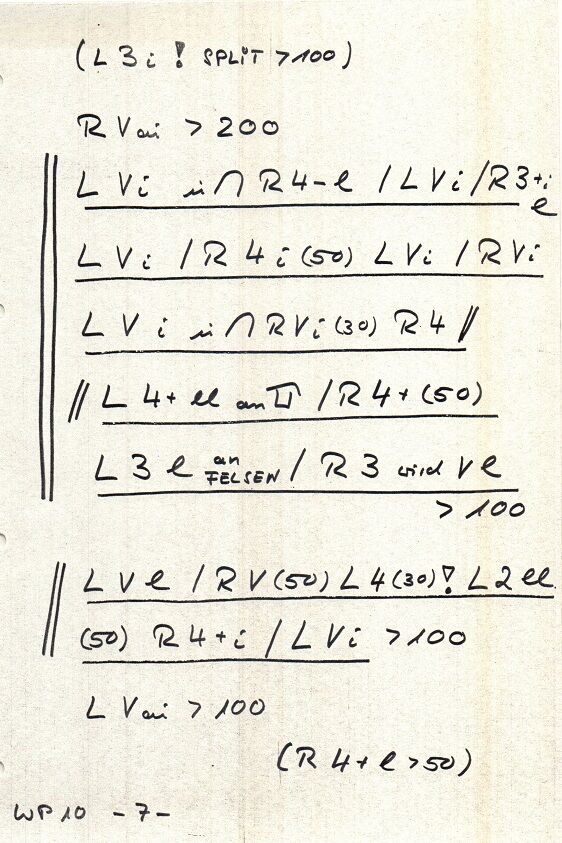 (L 3 i ! SPLIT > 100)
R V ai > 200
L Vi in ∩ R 4 - l / L Vi / R 3 + i
l
L Vi / R 4 i (50) L Vi / R Vi
L V i in ∩ R Vi (30) R 4 //
// L 4 + ll an / R 4 + (50)
L 3 l an FELSEN / R 3 wird V l
> 100
L V l / R V (50) L 4 (30) ! L 2 ll
(50) R 4 + i / L Vi > 100
L V ai > 100
(R 4 + l > 50)
WP 10 - 7 -